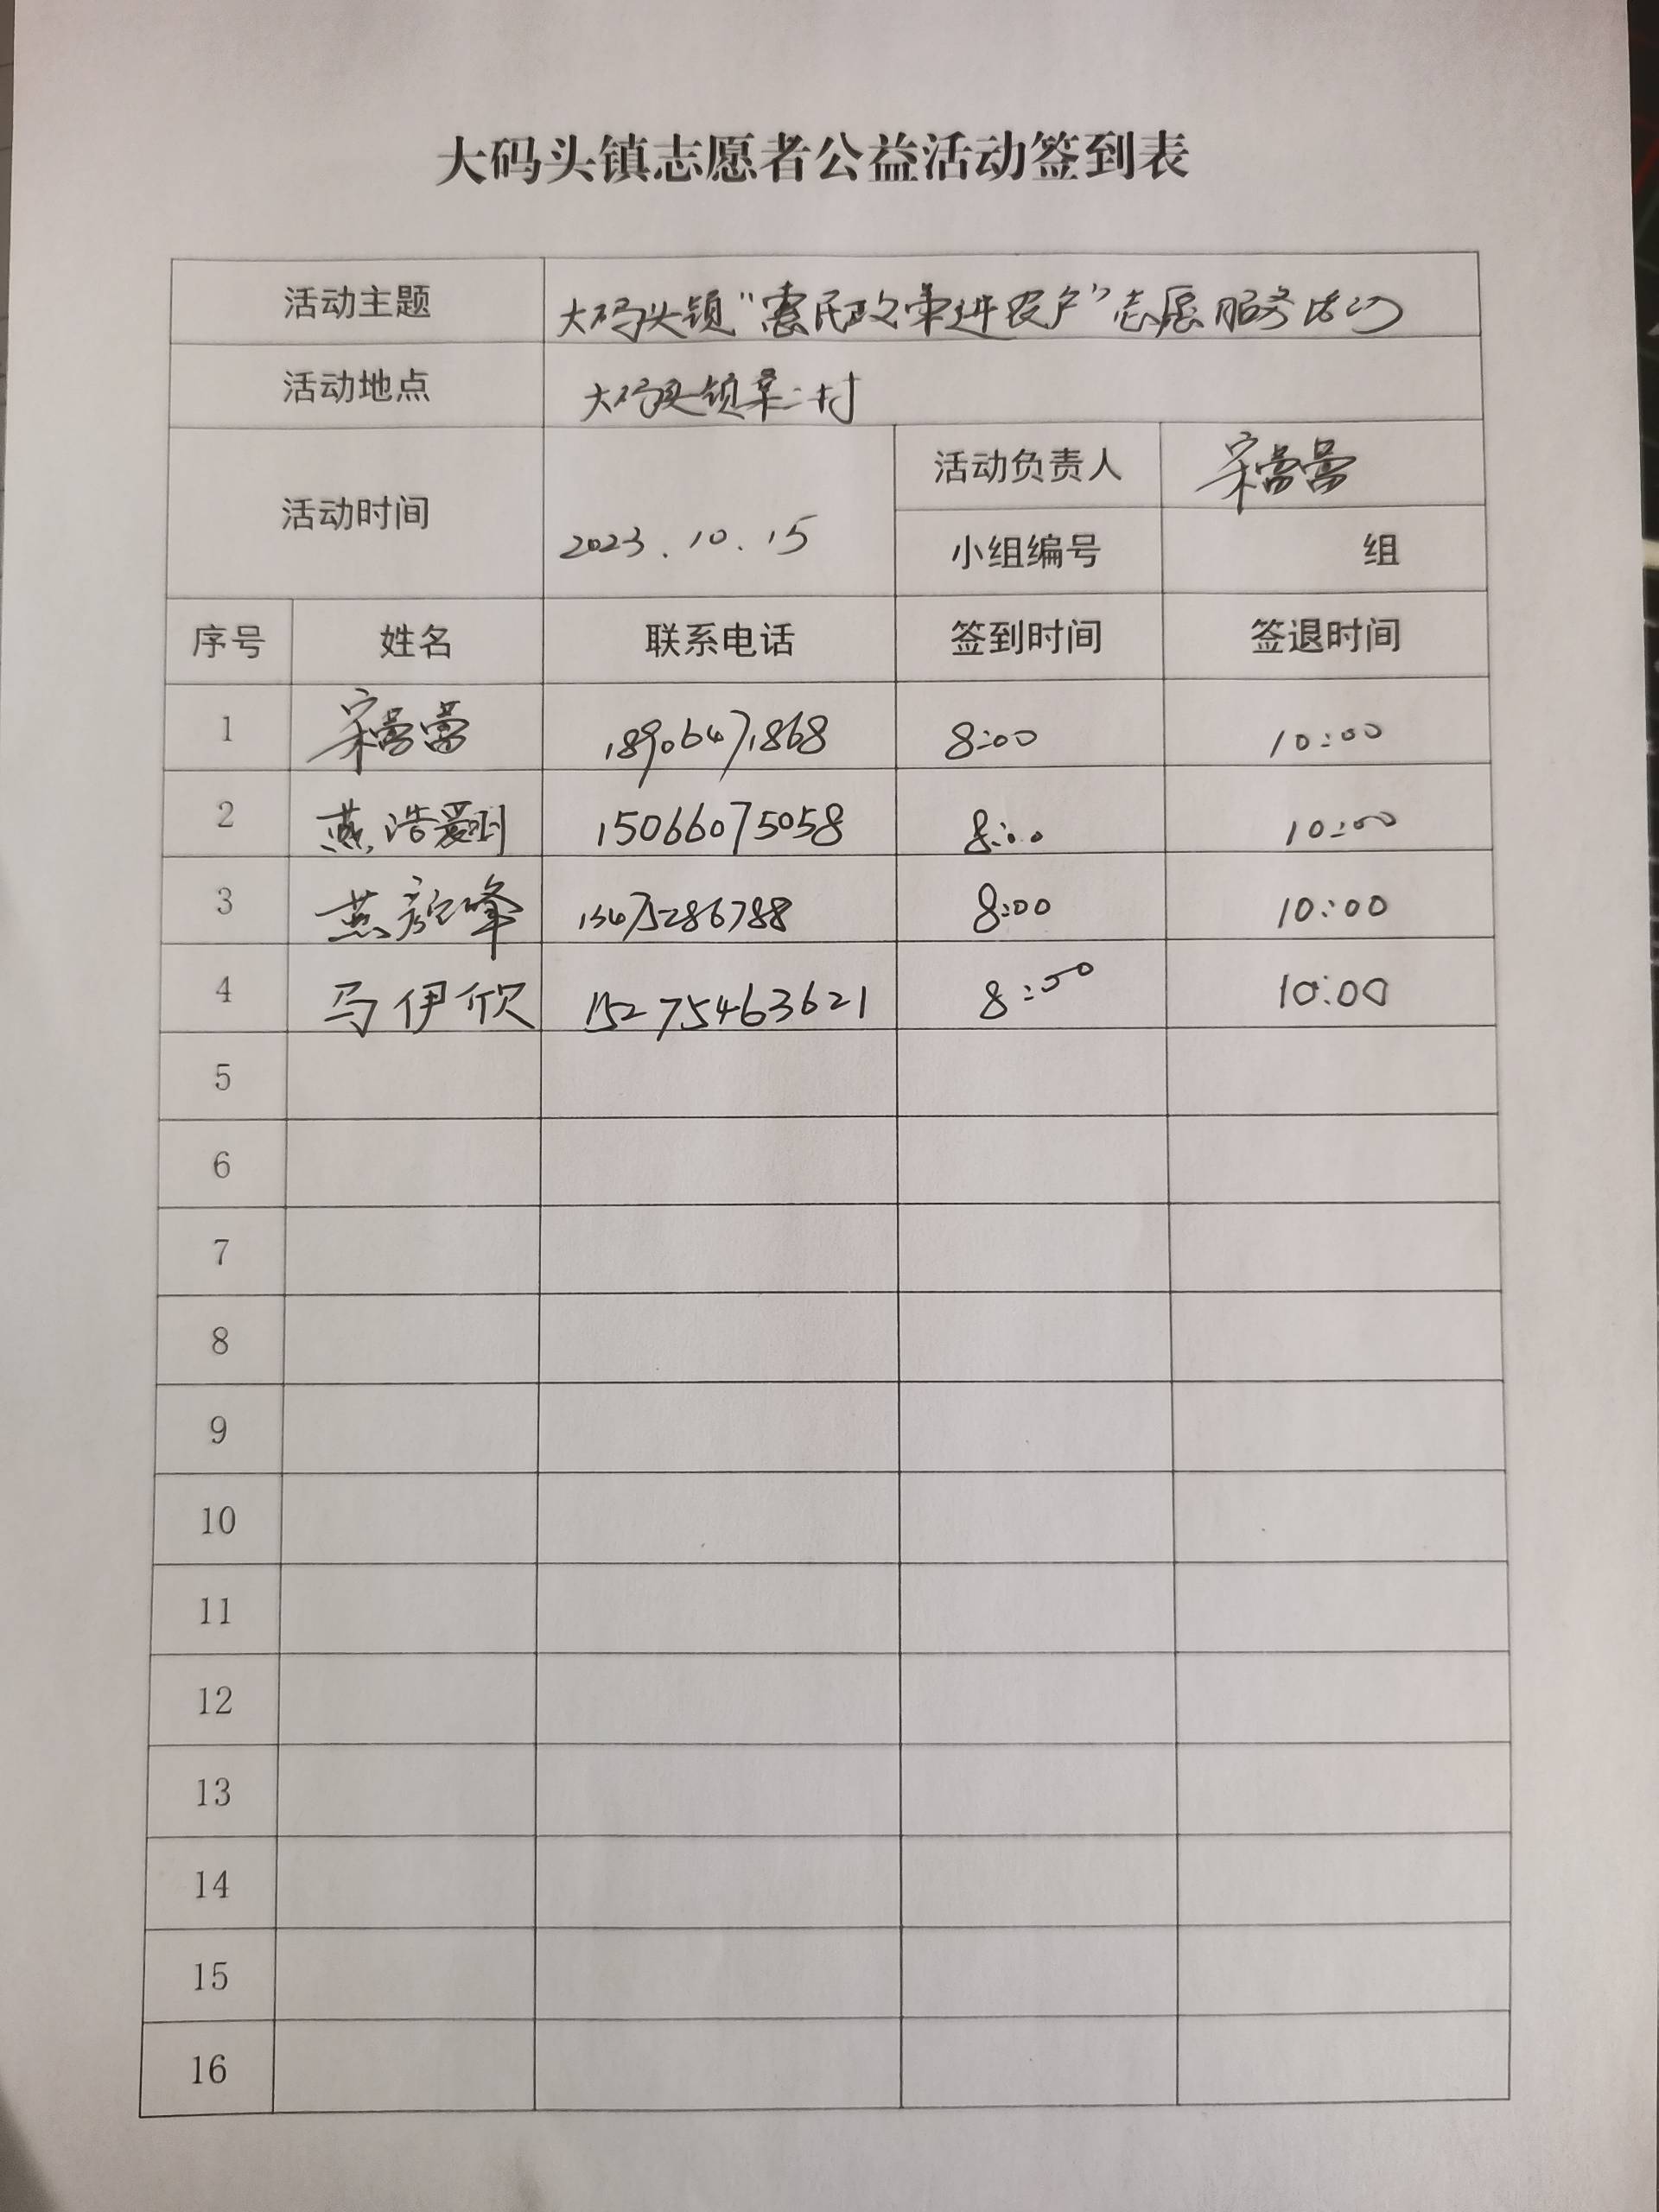 大码头镇志愿者公益活动签到表
活动主题 大码头镇“惠民政策进农户”志愿服务活动
活动地点 大码头镇 二村
活动时间 2023.10.15 活动负责人 宋
小组编号 组
序号 姓名 联系电话 签到时间 签退时间
1 宋 18906471868 8:00 10:00
2 燕浩 15066075058 8:00 10:00
3 燕彦峰 13475286788 8:00 10:00
4 马伊欣 15275463621 8:00 10:00
5
6
7
8
9
10
11
12
13
14
15
16